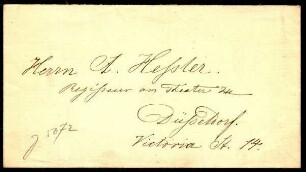 Herrn A. Heßler.
Regisseur am Theater zu
Düsseldorf.
Victoria St. 14.
5072